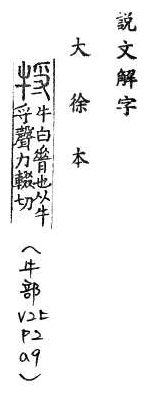 説文解字
大徐本
㸹 牛白脊也从牛
寽聲力輟切
（牛部V2上P2a9）